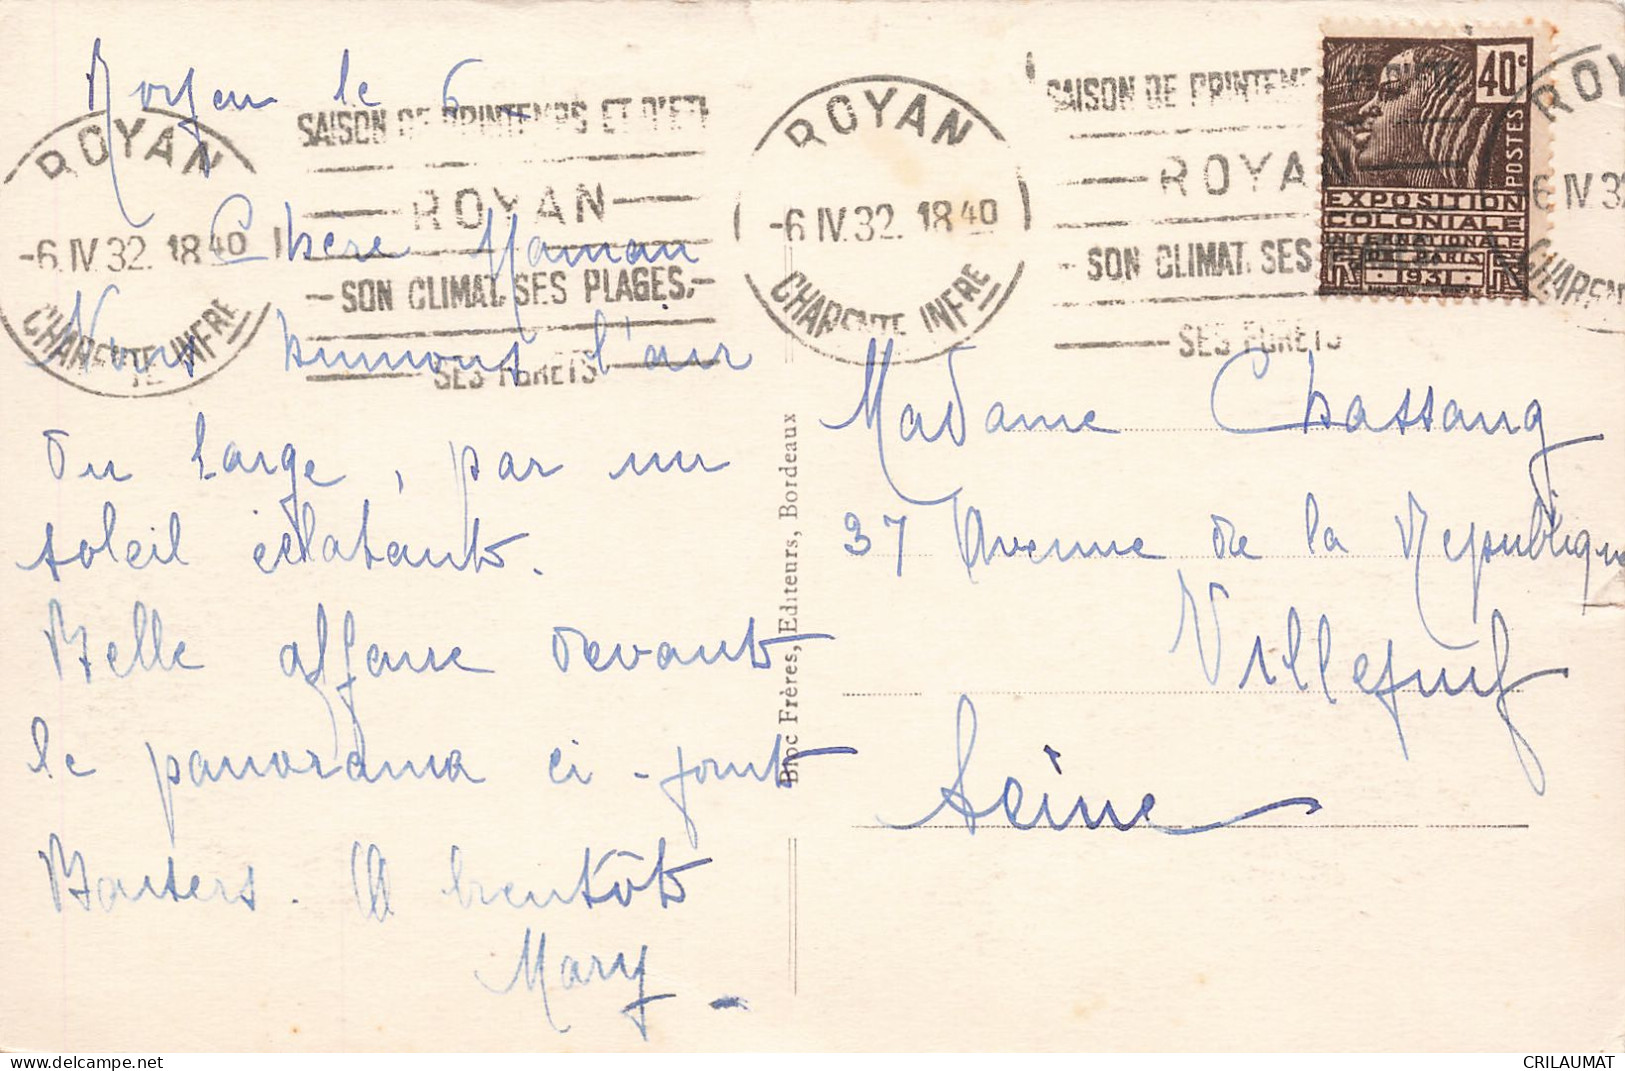 Royan le 6
Chère Maman
Nous humons l'air
du large, par un
soleil éclatant.
Belle affaire devant
le panorama ci-joint
Baisers. A bientôt
Mary
ROYAN
-6.IV.32. 18 40
CHARENTE INFRE
SAISON DE PRINTEMPS ET D'ETE
ROYAN
SON CLIMAT. SES PLAGES.
SES FORETS
ROYAN
-6.IV.32. 18 40
CHARENTE INFRE
SAISON DE PRINTEMPS
ROYAN
SON CLIMAT. SES
SES FORETS
ROY
6 IV 32
CHAREN
40c
POSTES
EXPOSITION
COLONIALE
INTERNATIONALE
PARIS
1931
Bloc Frères, Editeurs, Bordeaux
Madame Chassang
37 Avenue de la République
Villejuif
Seine
delcampe.net
CRILAUMAT